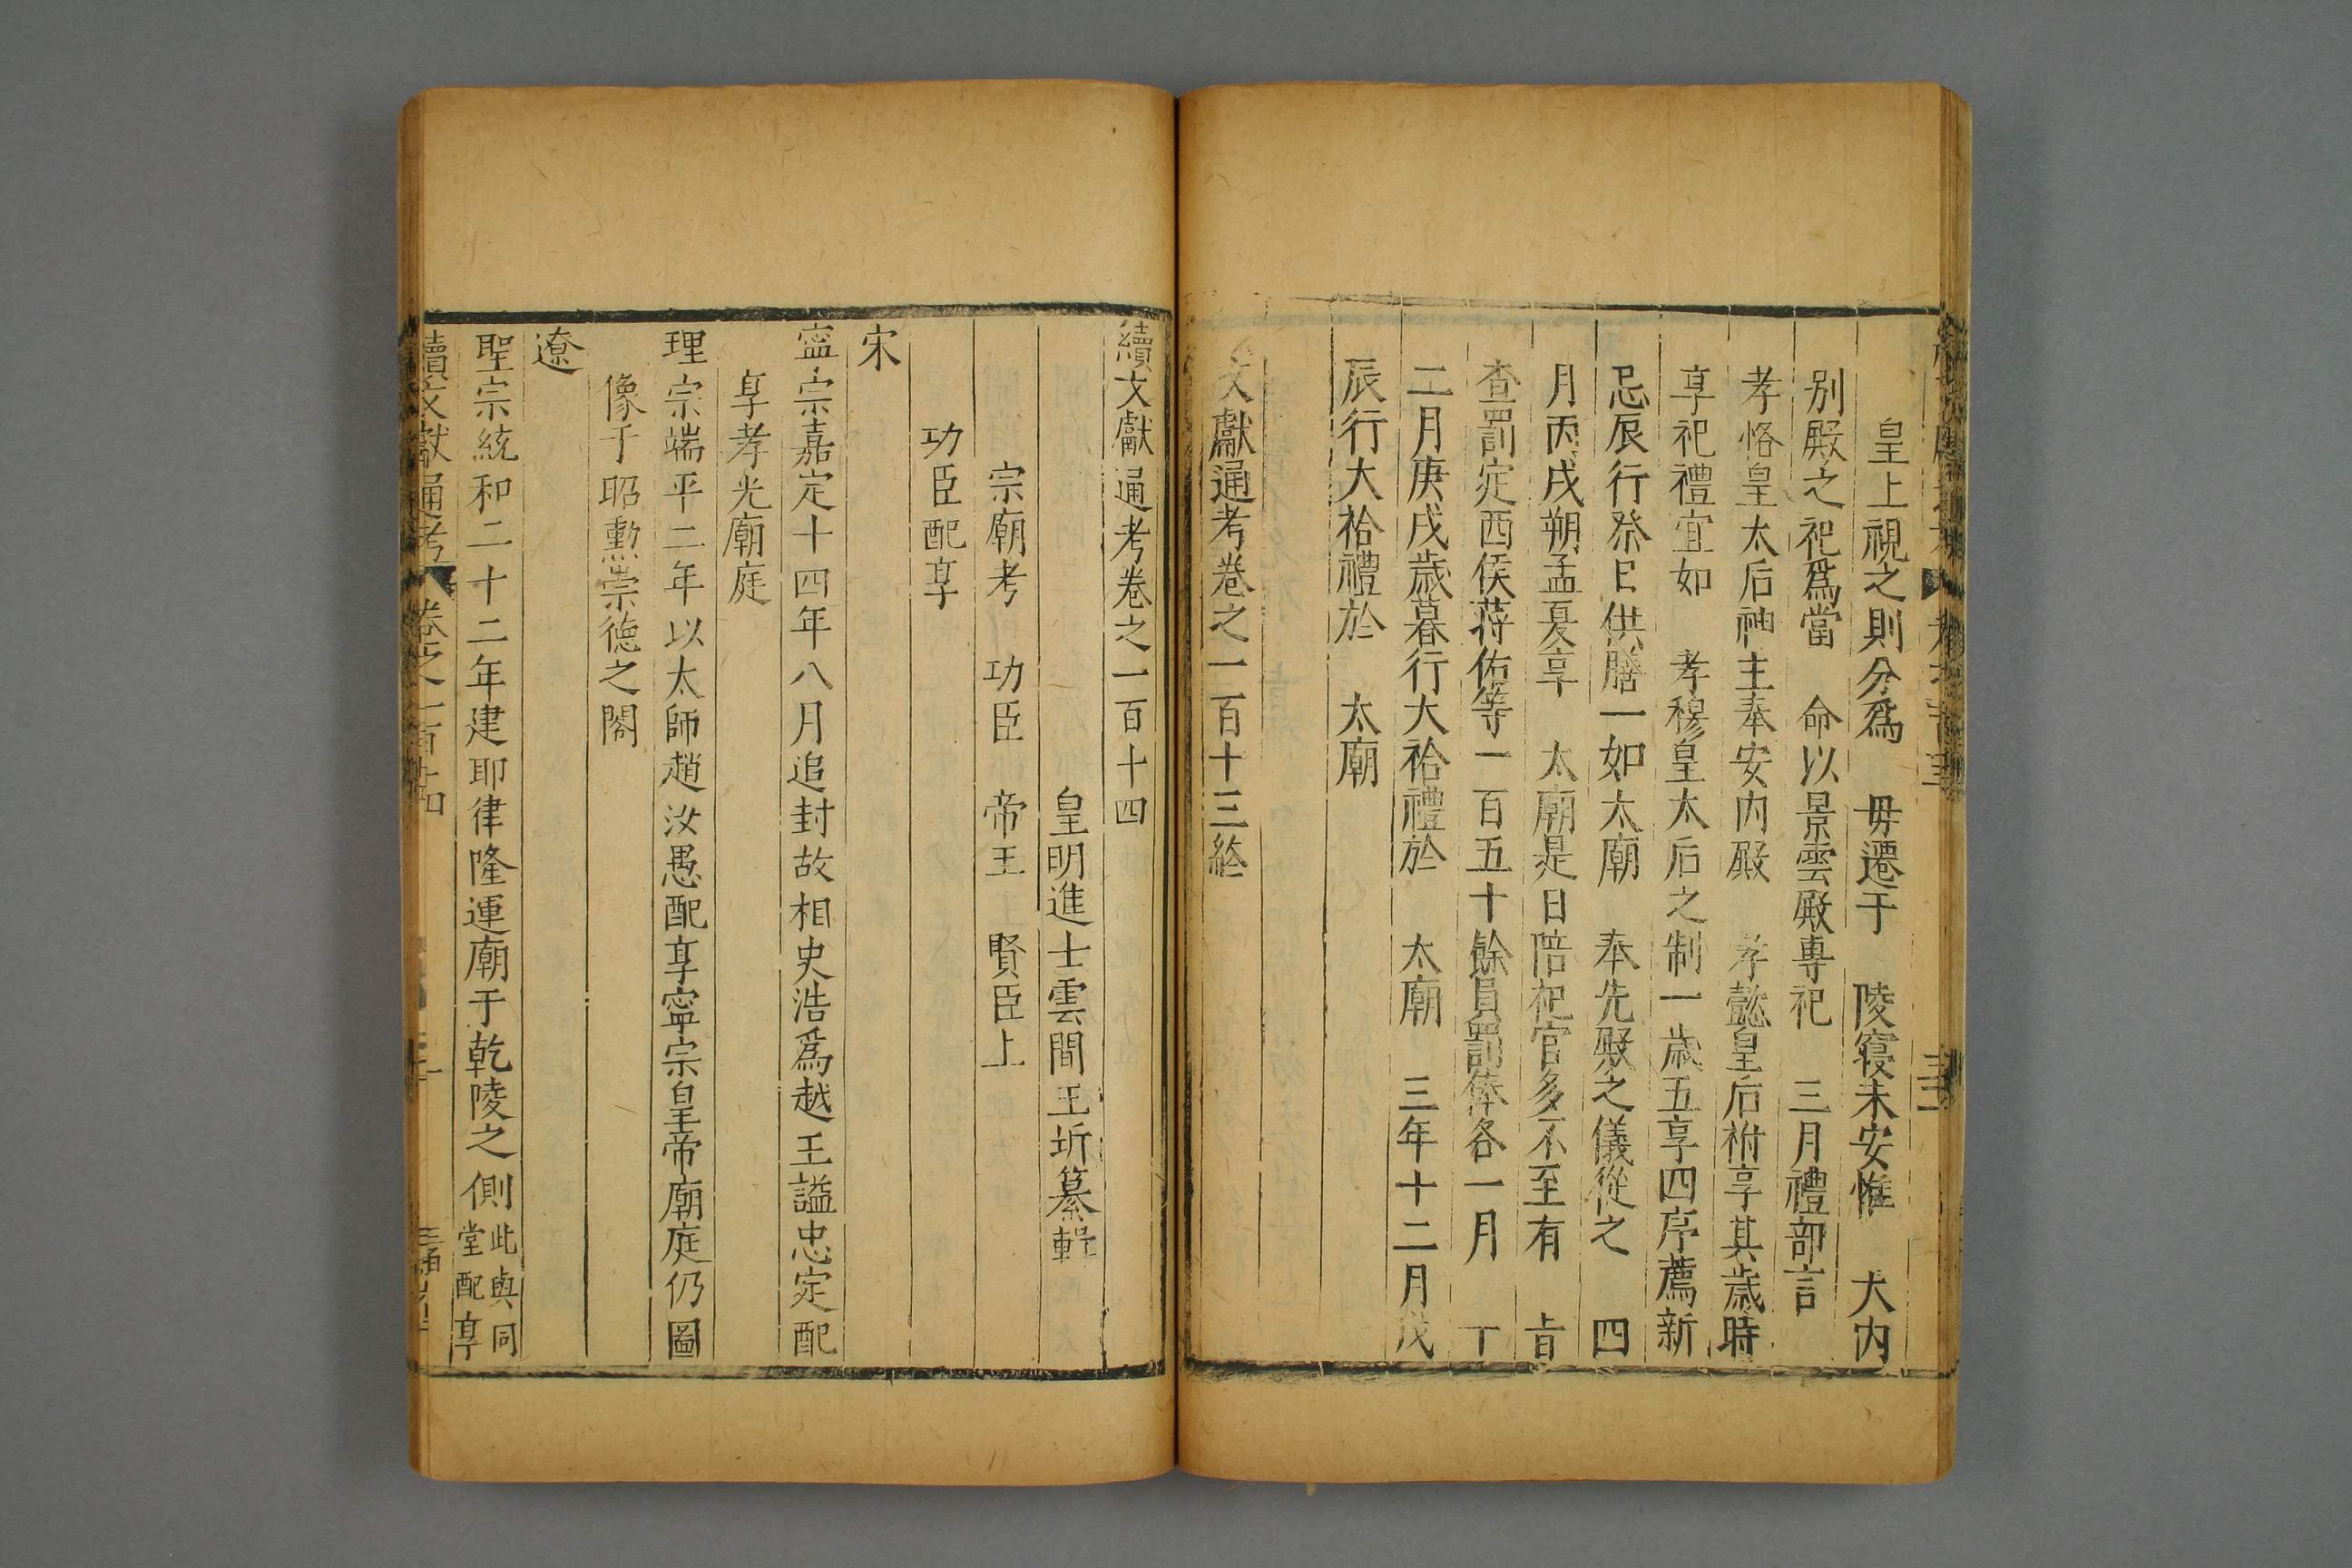 皇上視之則分爲　毋遷于　陵寝未安惟　大内
别殿之祀爲當　命以景雲殿專祀　三月禮部言
孝恪皇太后神主奉安内殿　孝懿皇后祔享其歲時
享祀禮宜如　孝穆皇太后之制一歲五享四序薦新
忌辰行祭日供膳一如太廟　奉先殿之儀從之　四
月丙戌朔孟夏享　太廟是日陪祀官多不至有　旨
查罰定西侯蔣佑等一百五十餘員罰俸各一月　丁
二月庚戌歲暮行大祫禮於　太廟　三年十二月戊
辰行大祫禮於　太廟
文獻通考卷之一百十三終
續文獻通考卷之一百十四
皇明進士雲間王圻纂輯
宗廟考　功臣　帝王　賢臣上
功臣配享
宋
寧宗嘉定十四年八月追封故相史浩爲越王謚忠定配
享孝光廟庭
理宗端平二年以太師趙汝愚配享寧宗皇帝廟庭仍圖
像于昭勳崇德之閣
遼
聖宗統和二十二年建耶律隆運廟于乾陵之側此與同堂配享
續文獻通考　卷之一百十四